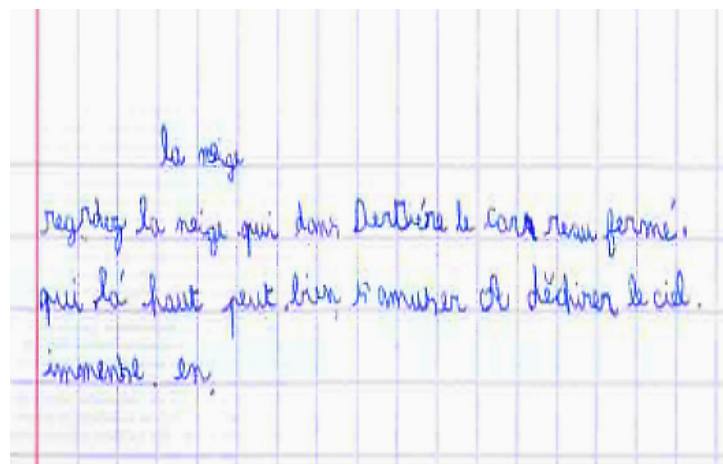 la neige
regrdez la neige qui dans Derriére le carr reau fermé.
qui lá haut peut bien s'amuser á déchirer le ciel.
immense. en